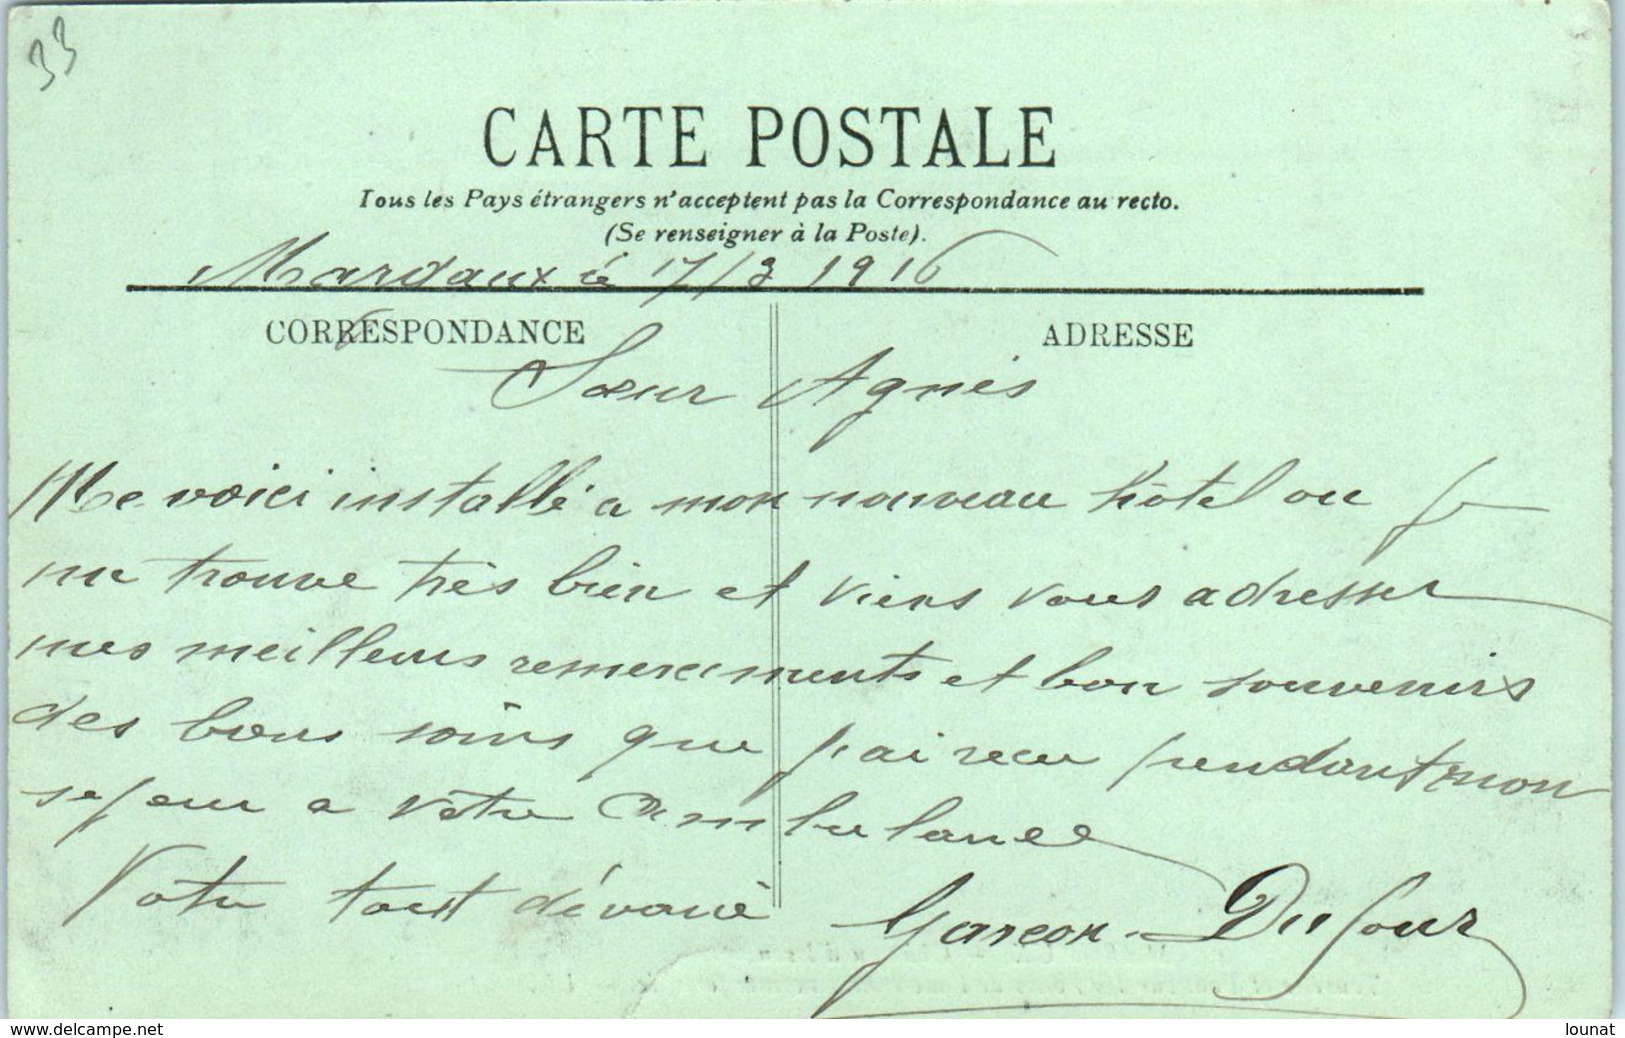 33
CARTE POSTALE
Tous les Pays étrangers n'acceptent pas la Correspondance au recto.
(Se renseigner à la Poste).
17/3 1916
CORRESPONDANCE
ADRESSE
Sœur Agnès
Me voici installé a mon nouveau hôtel ou je
me trouve très bien et viens vous adresser
mes meilleurs remerciments et bon souvenirs
des bons soins que j'ai recu pendant mon
sejour a votre Ambulance
Votre tout dévoué Garcon Dufour
www.delcampe.net
lounat